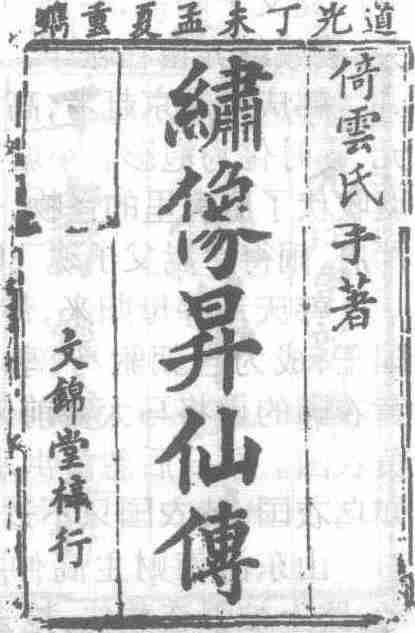 道光丁未孟夏重鐫
倚雲氏手著
繡像昇仙傳
文錦堂梓行